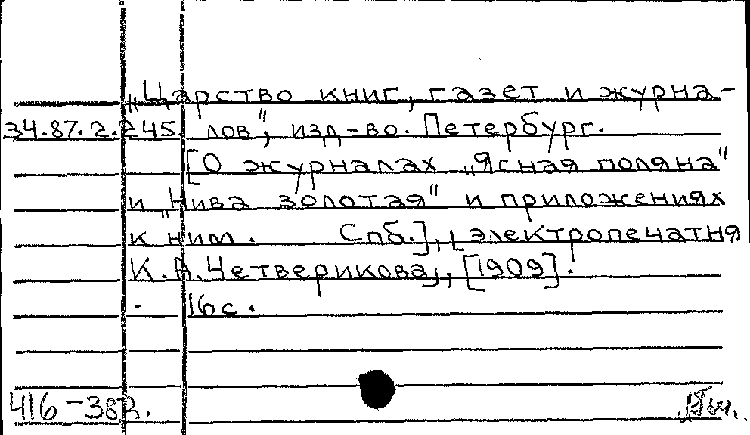 „Царство книг, газет и журна-
34.87.2.245. лов", изд-во. Петербург.
[О журналах „Ясная поляна"
и „Нива золотая" и приложениях
к ним. Спб.], [электропечатня
К. А. Четверикова], [1909].
16 с.
416-38